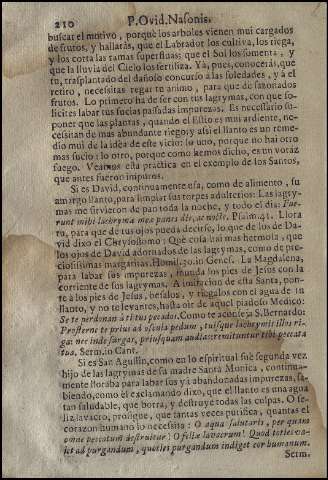 210 P. Ovid. Nasonis.
buscar el motivo, porque los arboles vienen mui cargados
de frutos, y hallaràs, que el Labrador los cultiva, los riega,
y los corta las ramas superfluas; que el Sol los fomenta, y
que la lluvia del Cielo los fertiliza. Yà, pues, conoceràs, que
tu, trasplantado del dañoso concurso à las soledades, y à el
retiro, necesitas regar tu animo, para que dè sazonados
frutos. Lo primero ha de ser con tus lagrymas, con que so-
licites labar tus sucias passadas impurezas. Es necessario su-
poner que las plantas, quando el Estio es mui ardiente, ne-
cessitan de mas abundante riego; y assi el llanto es un reme-
dio mui de la idea de este vicio: lo uno, porque no hai otro
mas sucio: lo otro, porque como hemos dicho, es un voraz
fuego. Veamos esta practica en el exemplo de los Santos,
que antes fueron impuros.
Si es David, continuamente usa, como de alimento, su
amargo llanto, para limpiar sus torpes adulterios: Las lagry-
mas me sirvieron de pan toda la noche, y todo el dia: Fue-
runt mihi lachrymæ meæ panes die, ac nocte. Psalm. 41. Llora
tu, para que de tus ojos pueda decirse, lo que de los de Da-
vid dixo el Chrysostomo: Què cosa hai mas hermosa, que
los ojos de David adornados de las lagrymas, como de pre-
ciosissimas margaritas. Homil. 30. in Genes. La Magdalena,
para labar sus impurezas, inunda los pies de Jesus con la
corriente de sus lagrymas. A imitacion de esta Santa, pon-
te à los pies de Jesus, besalos, y riegalos con el agua de tu
llanto, y no te levantes, hasta oir de aquel piadoso Medico:
Se te perdonan à ti tus pecados. Como te aconseja S. Bernardo:
Prosterne te prius ad oscula pedum, tuisque lachrymis illos ri-
ga: nec inde surgas, priusquam audias: remittuntur tibi peccata
tua. Serm. in Cant.
Si es San Agustin, como en lo espiritual fuè segunda vez
hijo de las lagrymas de su madre Santa Monica, continua-
mente lloraba para labar sus yà abandonadas impurezas, sa-
biendo, como èl exclamando dixo, que el llanto es una agua
tan saludable, que borra, y destruye todas las culpas. O fe-
liz lavacro, prosigue, que tantas veces purifica, quantas el
corazon humano lo necessita: O aqua salutaris, per quam
omne peccatum destruitur! O felix lavacrum! Quod toties va-
let ad purgandum, quoties purgandum indiget cor humanum.
Serm.